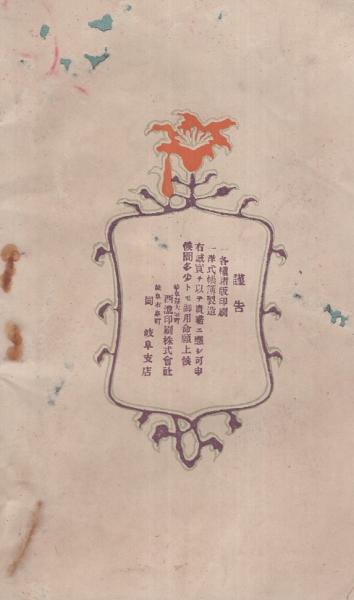 謹告
一各種諸版印刷
一洋式帳簿製造
右誠實ヲ以テ貴需ニ應シ可申
候間多少トモ御用命願上候
西濃印刷株式會社
岐阜市泉町
同 岐阜支店